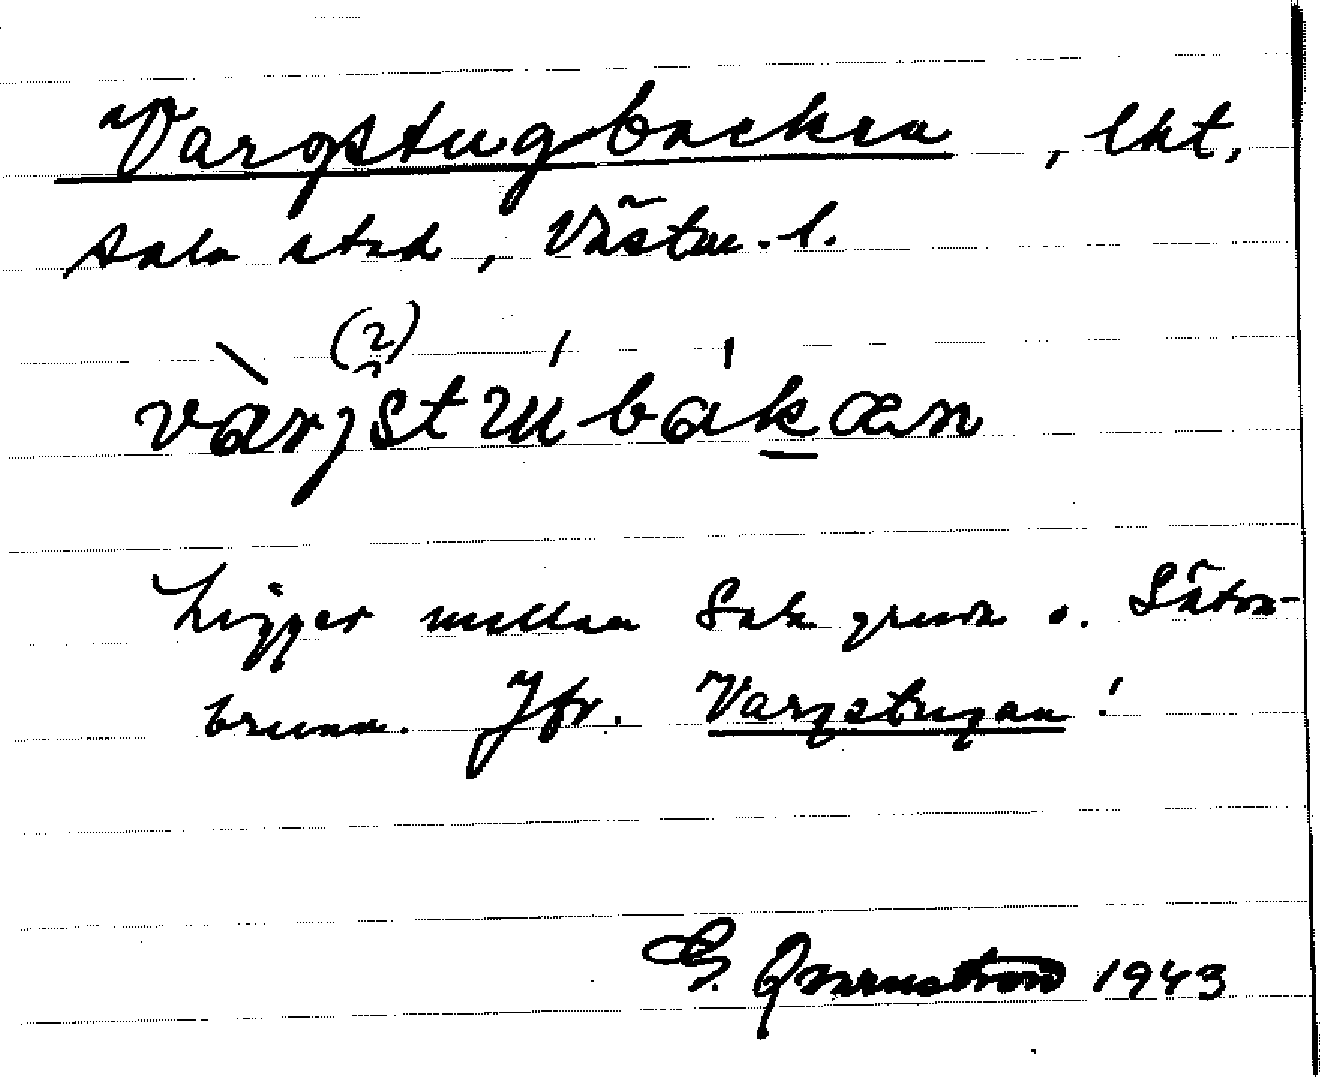 Vargstugbacken, lkt,
Sala stad, Västm. l.
(2)
vàrjstúbákan
Ligger mellan Sala gruva o. Sätra-
brunn. Jfr. Vargstugan!
G. Qvarnström 1943